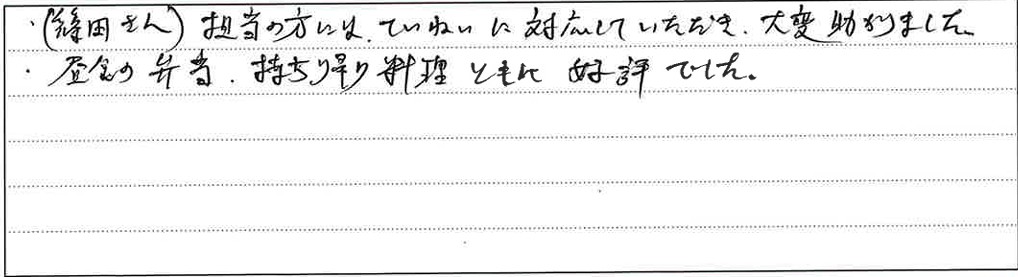 ・(篠田さん) 担当の方には、ていねいに対応していただき、大変助かりました。
・昼食の弁当、持ち帰り料理ともに好評でした。